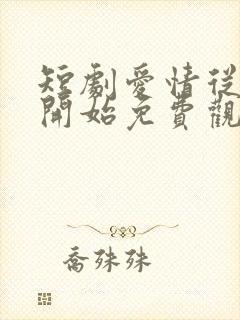 短劇愛情從
開始免費觀
喬殊殊